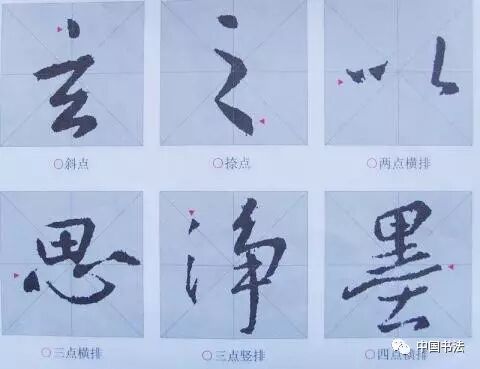 玄 之 以
○斜点 ○捺点 ○两点横排
思 淨 墨
○三点横排 ○三点竖排 ○四点横排
中国书法